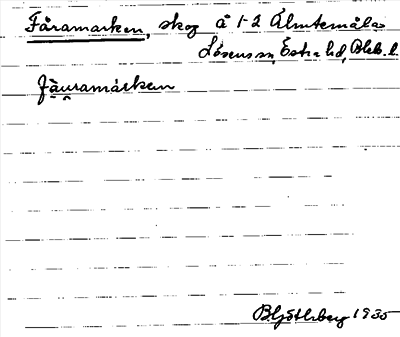 Fåramarken, skog å 1-2 Älmtemåla
Lösens sn, Östra hd, Blek. l.
Fåuramárken
B. Götlberg 1935